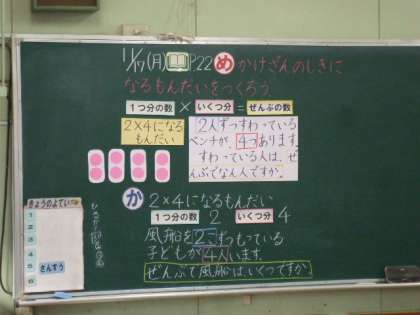 11/17(月) P22 め かけざんのしきに
なるもんだいをつくろう。
1つ分の数 × いくつ分 = ぜんぶの数
2×4になる
もんだい
2人ずつすわっている
ベンチが、4つあります。
すわっている人は、ぜ
んぶでなん人ですか。
か 2×4になるもんだい
1つ分の数 2 いくつ分 4
風船を2こずつもっている
子どもが4人います。
ぜんぶで風船はいくつですか。
きょうのよてい
1
2
3
4
5 さんすう
6